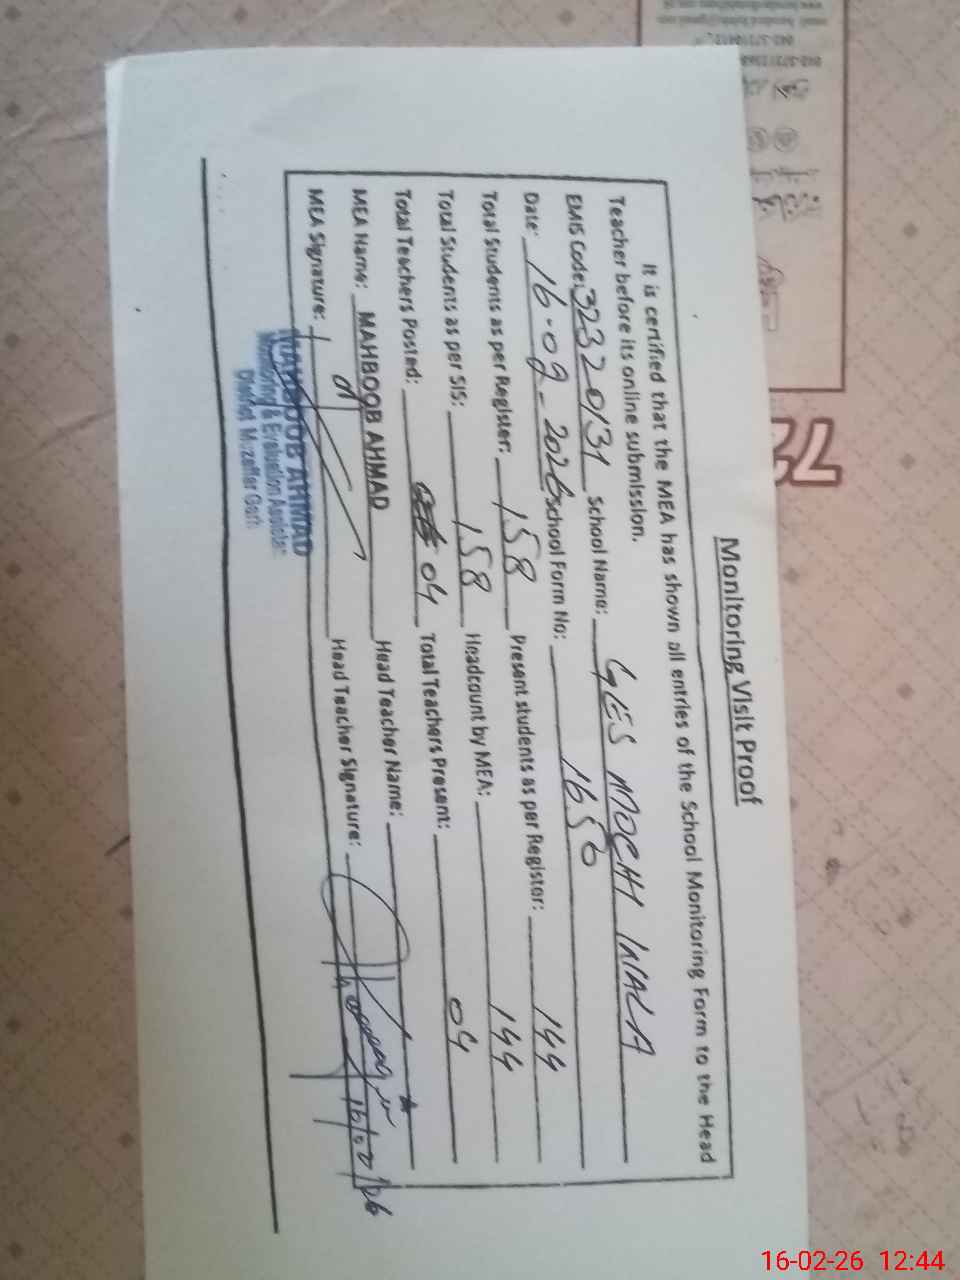 Monitoring Visit Proof
It is certified that the MEA has shown all entries of the School Monitoring Form to the Head
Teacher before its online submission.
EMIS Code: 32320131 School Name: GES MOCHI WALA
Date: 16-02-2026 School Form No: 1650
Total Students as per Register: 158 Present students as per Register: 144
Total Students as per SIS: 158 Headcount by MEA: 144
Total Teachers Posted: 04 Total Teachers Present: 04
MEA Name: MAHBOOB AHMAD Head Teacher Name:
MEA Signature: Head Teacher Signature:
MAHBOOB AHMAD
Monitoring & Evaluation Assistant
District Muzaffar Garh
72
16-02-26 12:44